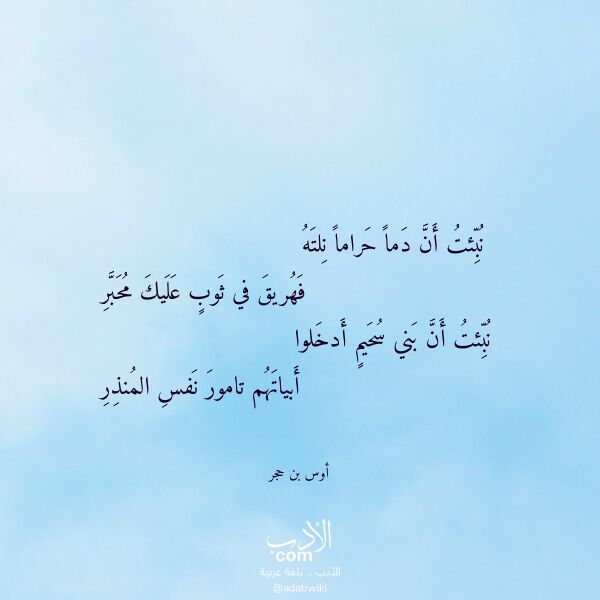 نُبِّئتُ أَنَّ دَماً حَراماً نِلتَهُ
فَهُريقَ في ثَوبٍ عَلَيكَ مُحَبَّرِ
نُبِّئتُ أَنَّ بَني سُحَيمٍ أَدخَلوا
أَبياتَهُم تامورَ نَفسِ المُنذِرِ
أوس بن حجر
الأدب
.com
الأدب .. بلغة عربية
@adabwiki